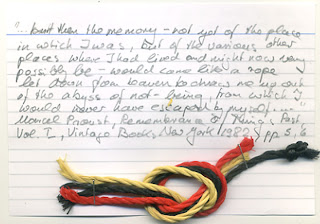 "... but then the memory - not yet of the place
in which I was, but of the various other
places where I had lived and might now very
possibly be - would come like a rope
let down from heaven to draw me up out
of the abyss of not-being, from which I
would never have escaped by myself...."
Marcel Proust, Remembrance of Things Past,
Vol. I, Vintage Books, New York 1982, pp 5, 6